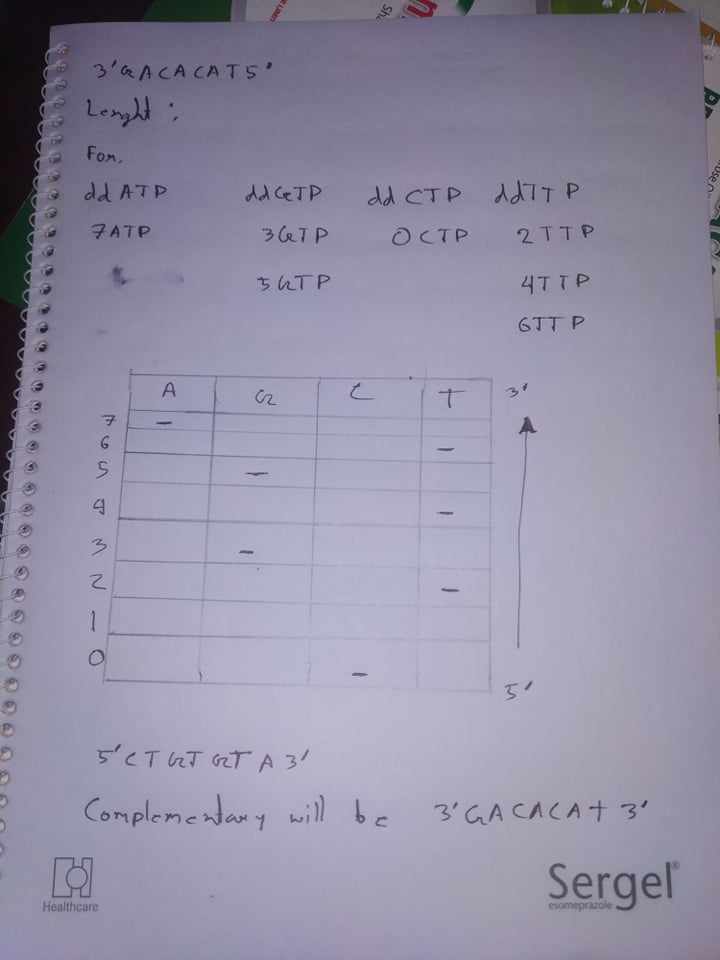 3' GACACAT 5'
Lenght :
For,
ddATP ddGTP ddCTP ddTTP
7ATP 3GTP 0CTP 2TTP
5GTP 4TTP
6TTP
A G C T 3'
7
6
5
4
3
2
1
0
5'
5' CTGTGTA 3'
Complementary will be 3' GACACAT 3'
Healthcare
Sergel®
esomeprazole